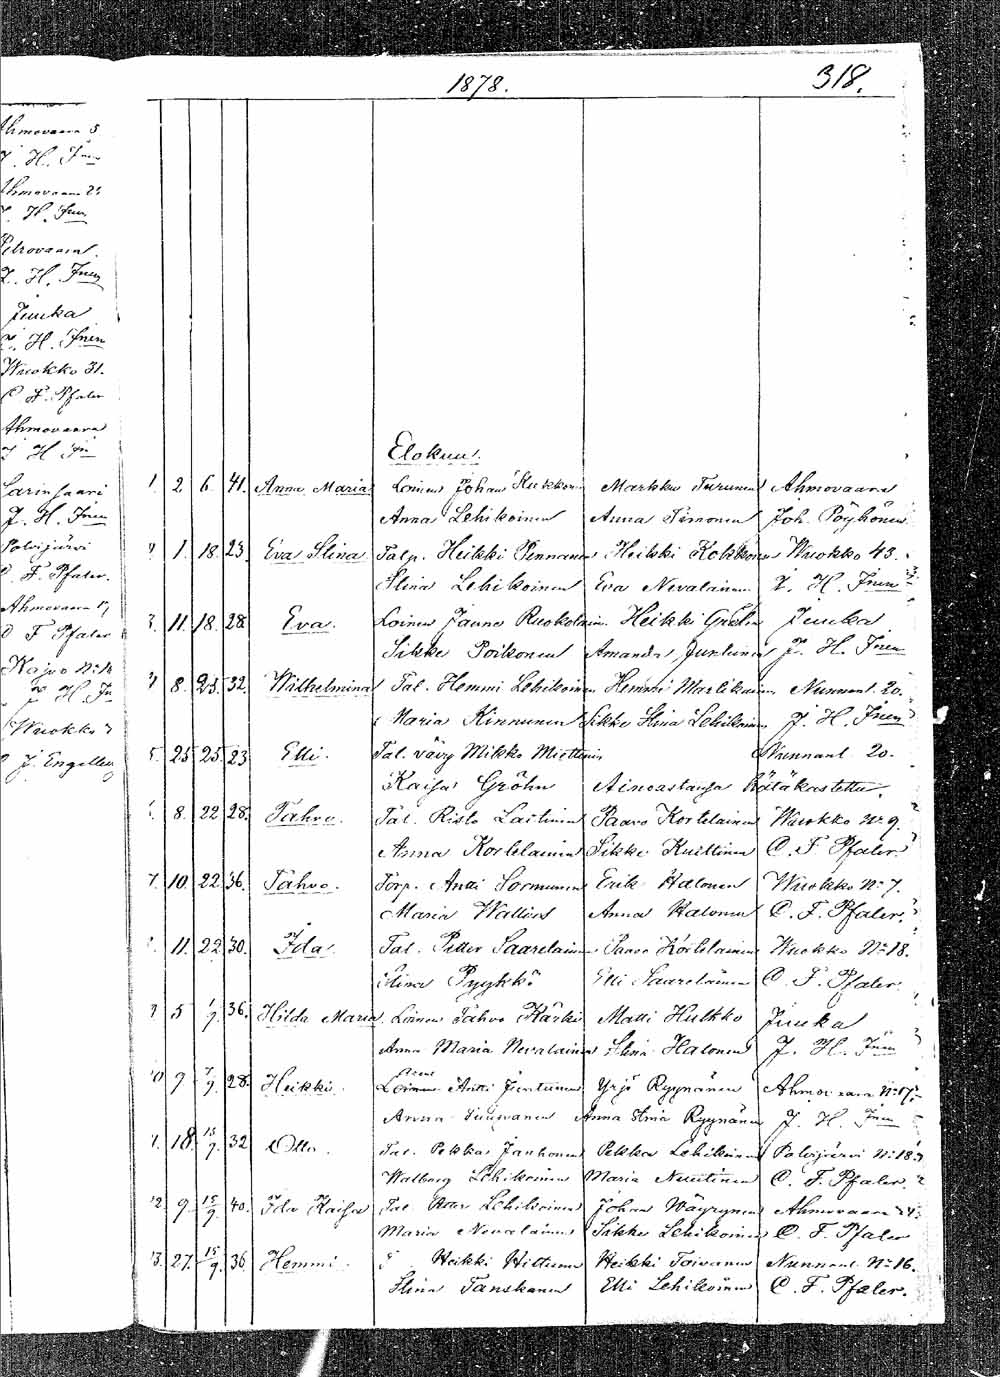 1878.
318.
Ahmovaara 5
J. H. Inen
Ahmovaara 2
J. H. Inen
Petrovaara.
J. H. Inen
Juuka
J. H. Inen
Wuokko 31.
C F. Pfaler
Ahmovaara
J H In
Larinsaari
J. H. Inen
Polvijärvi
C. F. Pfaler.
Ahmovaara
C F Pfaler
Kajvo No
J. H. In
Wuokko
J. Engelberg
Elokuu.
1. 2 6. 41. Anna Maria Loinen Johan Kukkonen Markku Turunen Ahmovaara
Anna Lehikoinen Anna Timonen Joh. Pöyhönen
2 1. 18. 23. Eva Stina Talp. Heikki Pennanen Heikki Kokkonen Wuokko 43.
Stina Lehikoinen Eva Nevalainen J. H. Inen
3. 11. 18. 28. Eva. Loinen Janne Ruokolainen Heikki Gröhn Juuka
Sikke Poikonen Amanda Juntunen J. H. Inen
4 8. 25. 32. Wilhelmina Tal. Hemmi Lehikoinen Hemmi Martikainen Nunnanl. 20.
Maria Kinnunen Sikke Stina Lehikoinen J. H. Inen
5. 25 25. 23 Elli. Tal. vävy Mikko Miettinen Nunnanl 20.
Kaisa Gröhn Ainoastansa hätäkastettu.
8. 22 28. Tahvo. Tal. Risto Laitinen Paavo Kortelainen Wuokko No 9.
Anna Kortelainen Sikke Kuittinen C. F. Pfaler.
7. 10. 22. 36. Tahvo. Torp. Antti Sormunen Erik Halonen Wuokko No 7.
Maria Wallius Anna Halonen C. F. Pfaler.
11. 22. 30. Ida. Tal. Petter Saarelainen Paavo Kortelainen Wuokko No 18.
Stina Pyykkö Elli Saarelainen C. F. Pfaler.
9 5 1/9. 36. Hilda Maria. Loinen Tahvo Kärki Matti Hulkko Juuka
Anna Maria Nevalainen Stina Halonen J. H. Inen
10 7 7/9. 28. Heikki. Loinen Antti Juntunen Yrjö Ryynänen Ahmovaara No 17.
Anna Stina Ryynänen J. H. Inen
18. 15/9. 32 Otto. Tal. Pekka Janhonen Pekka Lehikoinen Polvijärvi No 18.
Walborg Lehikoinen Maria Nuutinen C. F. Pfaler.
12. 9. 15/9. 40. Ida Kaisa Tal. Lehikoinen Johan Wäyrynen Ahmovaara
Maria Nevalainen Sikke Lehikoinen C. F. Pfaler
13. 27. 15/9. 36. Hemmi. Heikki Hiltunen Heikki Toivanen Nunnanl No 16.
Stina Tanskanen Elli Lehikoinen C. F. Pfaler.